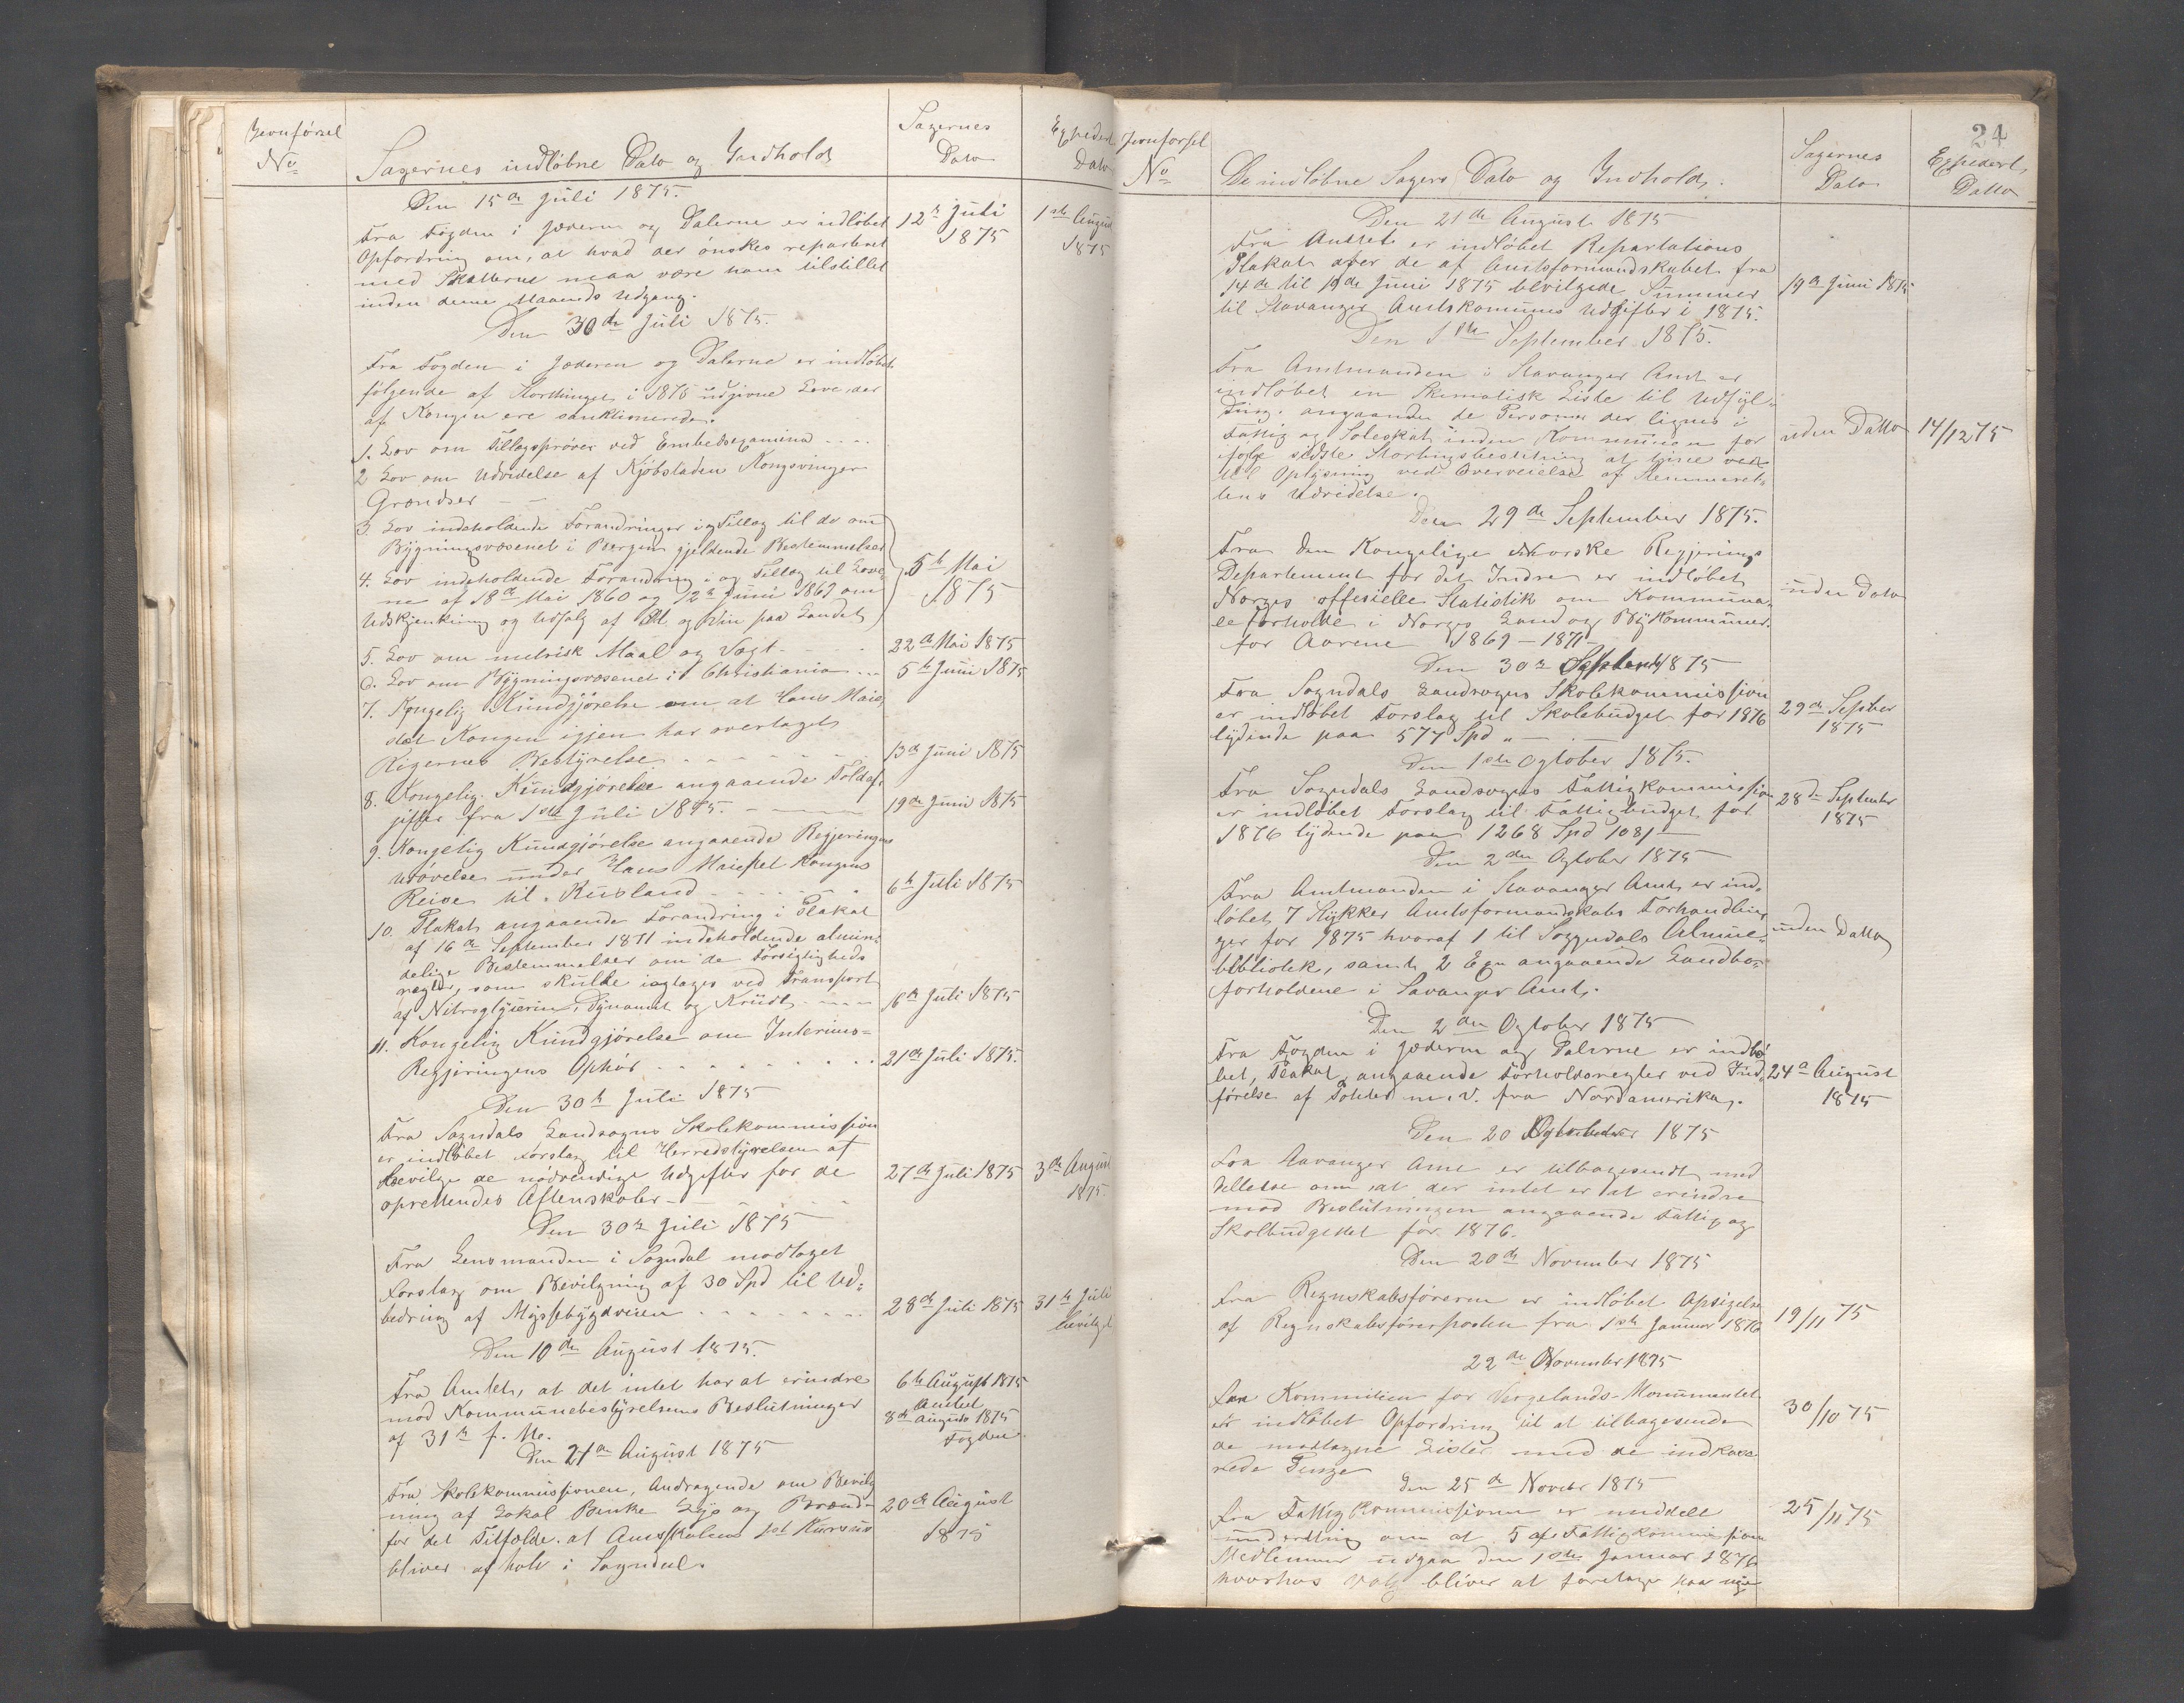 Jevnførsel
No
Sagernes indløbne Dato og Indhold
Sagernes
Dato
Expedert
Dato
Den 15de Juli 1875.
Fra Fogden i Jæderen og Dalerne er indløbet
Opfordring om, at hvad der ønskes reparteret
med Skatterne maa være ham tilstillet
inden denne Maaneds Udgang.
12te Juli
1875
1ste August
1875
Den 30de Juli 1875.
Fra Fogden i Jæderen og Dalerne er indløbet
følgende af Storthinget i 1875 udgivne Love, der
af Kongen ere sanktionerede.
1. Lov om Tillægsprøver ved Embedsexamina ....
2 Lov om Udvidelse af Kjøbstaden Kongsvinger
Grændser
3. Lov indeholdende Forandringer i og Tillæg til de om
Bygningsvæsenet i Bergen gjeldende Bestemmelser
4. Lov indeholdende Forandring i og Tillæg til Love
ne af 18de Mai 1860 og 12te Juni 1869 om
Udskjenkning og Udsalg af Øl og Vin paa Landet
5te Mai
1875
5. Lov om metrisk Maal og Vægt
22de Mai 1875
6. Lov om Bygningsvæsenet i Christiania ...
5te Juni 1875
7. Kongelig Kundgjørelse om at Hans Maies,
stæt Kongen igjen har overtaget
Rigernes Bestyrelse
13de Juni 1875
8. Kongelig Kundgjørelse angaaende Toldaf,
jifter fra 1ste Juli 1875.
19de Juni 1875
9. Kongelig Kundgjørelse angaaende Regjeringens
Udøvelse under Hans Maiestet Kongens
Reise til Rusland
6te Juli 1875
10. Plakat angaaende Forandring i Plakat
af 16de September 1871 indeholdende almin,
delige Bestemmelser om de Forsigtigheds
regler, som skulle iagtages ved Transport
af Nitroglycerin, Dynamit og Krudt
6te Juli 1875
11. Kongelig Kundgjørelse om Interims=
Regjeringens Ophør
21de Juli 1875.
Den 30te Juli 1875
Fra Sogndals Landsogns Skolekommission
er indløbet Forslag til Herredstyrelsen at
bevilge de nødvendige Udgifter for de
oprettendes Aftenskoler
27de Juli 1875
3de August
1875.
Den 30te Juli 1875
Fra Lensmanden i Sogndal modtaget
Forslag om Bevilgning af 30 Spd til Ud=
bedring af Myssebygdveien
28de Juli 1875
31te Juli
bevilget
Den 10de August 1875.
Fra Amtet, at det intet har at erindre
mod Kommunebestyrelsens Beslutninger
af 31te f. M.
6te August 1875
Amtet
8de August 1875
Fogden
Den 21de August 1875
Fra Skolekommissionen, Andragende om Bevilg
ning af Lokal Benke Lys og Brænde
for det Tilfælde at Amtsskolens 1st Kursus
bliver afholt i Sogndal.
20de August
1875
24
Jevnførsel
No
De indløbne Sagers Dato og Indhold.
Sagernes
Dato
Expedert,
Datto
Den 21de August 1875
Fra Amtet er indløbet Repartations
Plakat over de af Amtsformandskabet fra
14de til 19de Juni 1875 bevilgede Summer
til Stavanger Amtskomunes Udgifter i 1875.
19de Juni 1875
Den 1ste September 1875.
Fra Amtmanden i Stavanger Amt er
indløbet en Skematisk Liste til Udfyl=
ding. angaaende de Personer der lignes i
Fattig og Soleskat inden Kommunen for
ifølge sidste Stortingsbeslutning at tjene ved
til Oplysning ved Overveielse af Stemmeret,
tens Udvidelse.
uden Datto
14/12 75
Den 29de September 1875.
Fra den Kongelige Norske Regjerings
Departement for det Indre er indløbet
Norges offesielle Statistik om Kommuna,
le Forholde i Norges Land og Bykommuner.
for Aarene 1869 – 1871
uden Dato
Den 30te September 1875
Fra Sogndals Landsogns Skolekommission
er indløbet Forslag til Skolebudget for 1876
lydende paa 577 Spd „ —
29de Septber
1875
Den 1ste Oqtober 1875.
Fra Sogndals Landsogns Fattigkommission
er indløbet Forslag til Fattigbudget for
1876 lydende paa 1268 Spd 108 /
28de September
1875
Den 2den Oqtober 1875
Fra Amtmanden i Stavanger Amt er ind,
løbet 7 Stykker Amtsformandskabs Forhandlin,
ger for 1875 hvoraf 1 til Soggndals Almue=
bibliotek, samt 2 Exp angaaende Landbo=
forholdene i Stavanger Amt.
uden Datto
Den 2den Oqtober 1875
Fra Fogden i Jæderen og Dalerne er indlø
bet, Plakat, angaaende Forholdsregler ved Ind,
førelse af Poteter m. v. fra Nordamerika,.
24de August
1875
Den 20 Oqtober 1875
Fra Stavanger Amt er tilbagesendt med
dellelse om, at der intet er at erindre
mod Beslutningen angaaende Fattig og
Skolbudgettet for 1876.
Den 20de November 1875
Fra Regnskabsføreren er indløbet Opsigelse
af Regnskabsførerposten fra 1ste Januar 1876
19/11 75
22de November 1875
Fra Kommitieen for Vergelands-Monumentet
er indløbet Opfordring til at tilbagesende
de modtagne Lister med de indkasse
rede Penge
30/10 75
Den 25de Novebr 1875
Fra Fattigkommissionen er meddelt
underetning om at 5 af Fattigkommissions
Medlemmer udgaa den 1ste Januar 1876
hvorhos Valg bliver at foretage paa nye
25/11 75